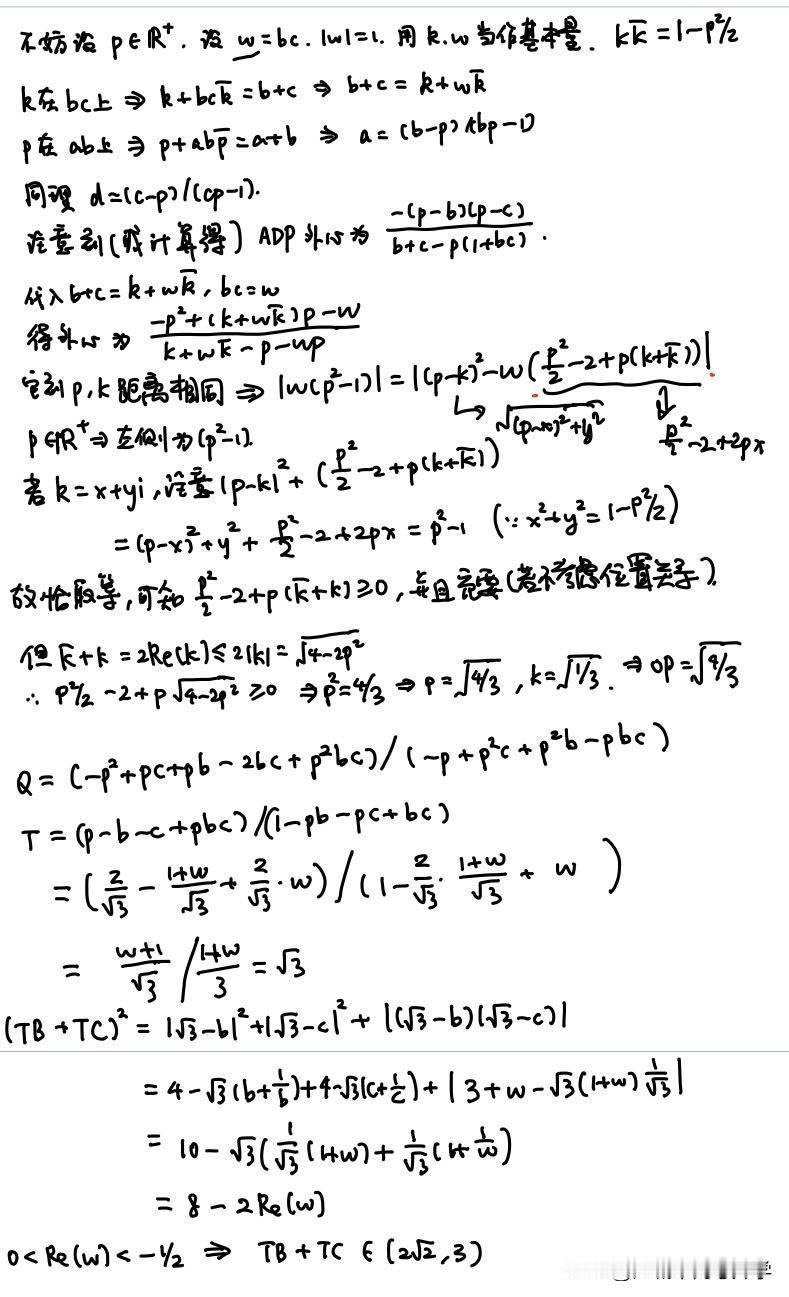 不妨设 p∈ℝ⁺. 设 w=bc. |w|=1. 用 k.w 当作基本量. kk̄=1-p²/2
k在bc上 ⇒ k+bck̄=b+c ⇒ b+c=k+wk̄
p在ab上 ⇒ p+abp̄=a+b ⇒ a=(b-p)/(bp-1)
同理 d=(c-p)/(cp-1).
注意到(或计算得) ADP外心为 -(p-b)(p-c)/(b+c-p(1+bc)).
代入 b+c=k+wk̄, bc=w
得外心为 (-p²+(k+wk̄)p-w)/(k+wk̄-p-wp)
它到p,k距离相同 ⇒ |w(p²-1)|=|(p-k)²-w(p²/2-2+p(k+k̄))|.
p∈ℝ⁺⇒左侧为(p²-1). √((p-x)²+y²) p²/2-2+2px
若 k=x+yi,注意|p-k|²+(p²/2-2+p(k+k̄))
=(p-x)²+y²+p²/2-2+2px=p²-1 (∵x²+y²=1-p²/2)
故恰取等,可知 p²/2-2+p(k̄+k)≥0,并且充要(若不考虑位置关系).
但 k̄+k=2Re(k)≤2|k|=√(4-2p²)
∴ p²/2-2+p√(4-2p²)≥0 ⇒p²=4/3 ⇒ p=√(4/3), k=√(1/3). ⇒ op=√(4/3)
Q=(-p²+pc+pb-2bc+p²bc)/(-p+p²c+p²b-pbc)
T=(p-b-c+pbc)/(1-pb-pc+bc)
=(2/√3-(1+w)/√3+2/√3·w)/(1-2/√3·(1+w)/√3+w)
=(w+1)/√3/(1+w)/3=√3
(TB+TC)²=|√3-b|²+|√3-c|²+|(√3-b)(√3-c)|
=4-√3(b+1/b)+4-√3(c+1/c)+|3+w-√3(1+w)1/√3|
=10-√3(1/√3(1+w)+1/√3(1+1/w))
=8-2Re(w)
0<Re(w)<-1/2 ⇒ TB+TC∈(2√2,3)